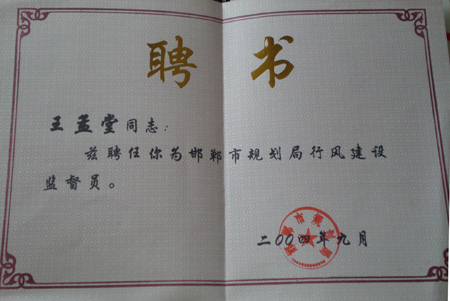 聘书
王孟堂同志：
兹聘任你为邯郸市规划局行风建设
监督员。
二〇〇四年九月